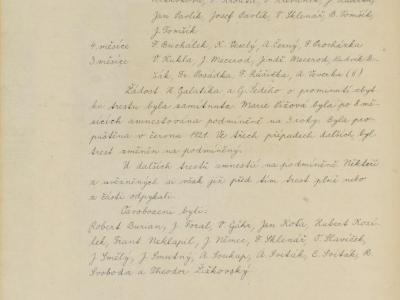 Jan Pavlík, Josef Pavlík, V. Sklenář, B. Tomšík,
J. Tomšík
4 měsíce F. Buchálek, K. Veselý, A. Černý, F. Procházka
3 měsíce V. Kukla, J. Macerod, Jindř. Macerod, Ludvík
žák, Fr. Posádka, F. Růžička, A. Veverka (8)
Žádost K. Galatíka a G. Šedého o prominutí zbyt-
ku trestu byla zamítnuta. Marie Věžová byla po 8 mě-
sících amnestována podmíněně na 3 roky. Byla pro-
puštěna v červnu 1921. Ve třech případech dalších byl
trest změněn na podmíněný.
U dalších trestů amnestií na podmíněné. Někteří
z uvězněných si však již před tím trest plně nebo
z části odpykali.
Osvobozeni byli:
Robert Burian, J. Foral, V. Gühr, Jan Koťa, Hubert Kozí-
lek, Frant. Neklapil, J. Němec, F. Sklenář, T. Slavíček,
J. Smělý, J. Smutný, A. Soukap, A. Sviták, C. Sviták, R.
Svoboda a Theodor Žižkovský